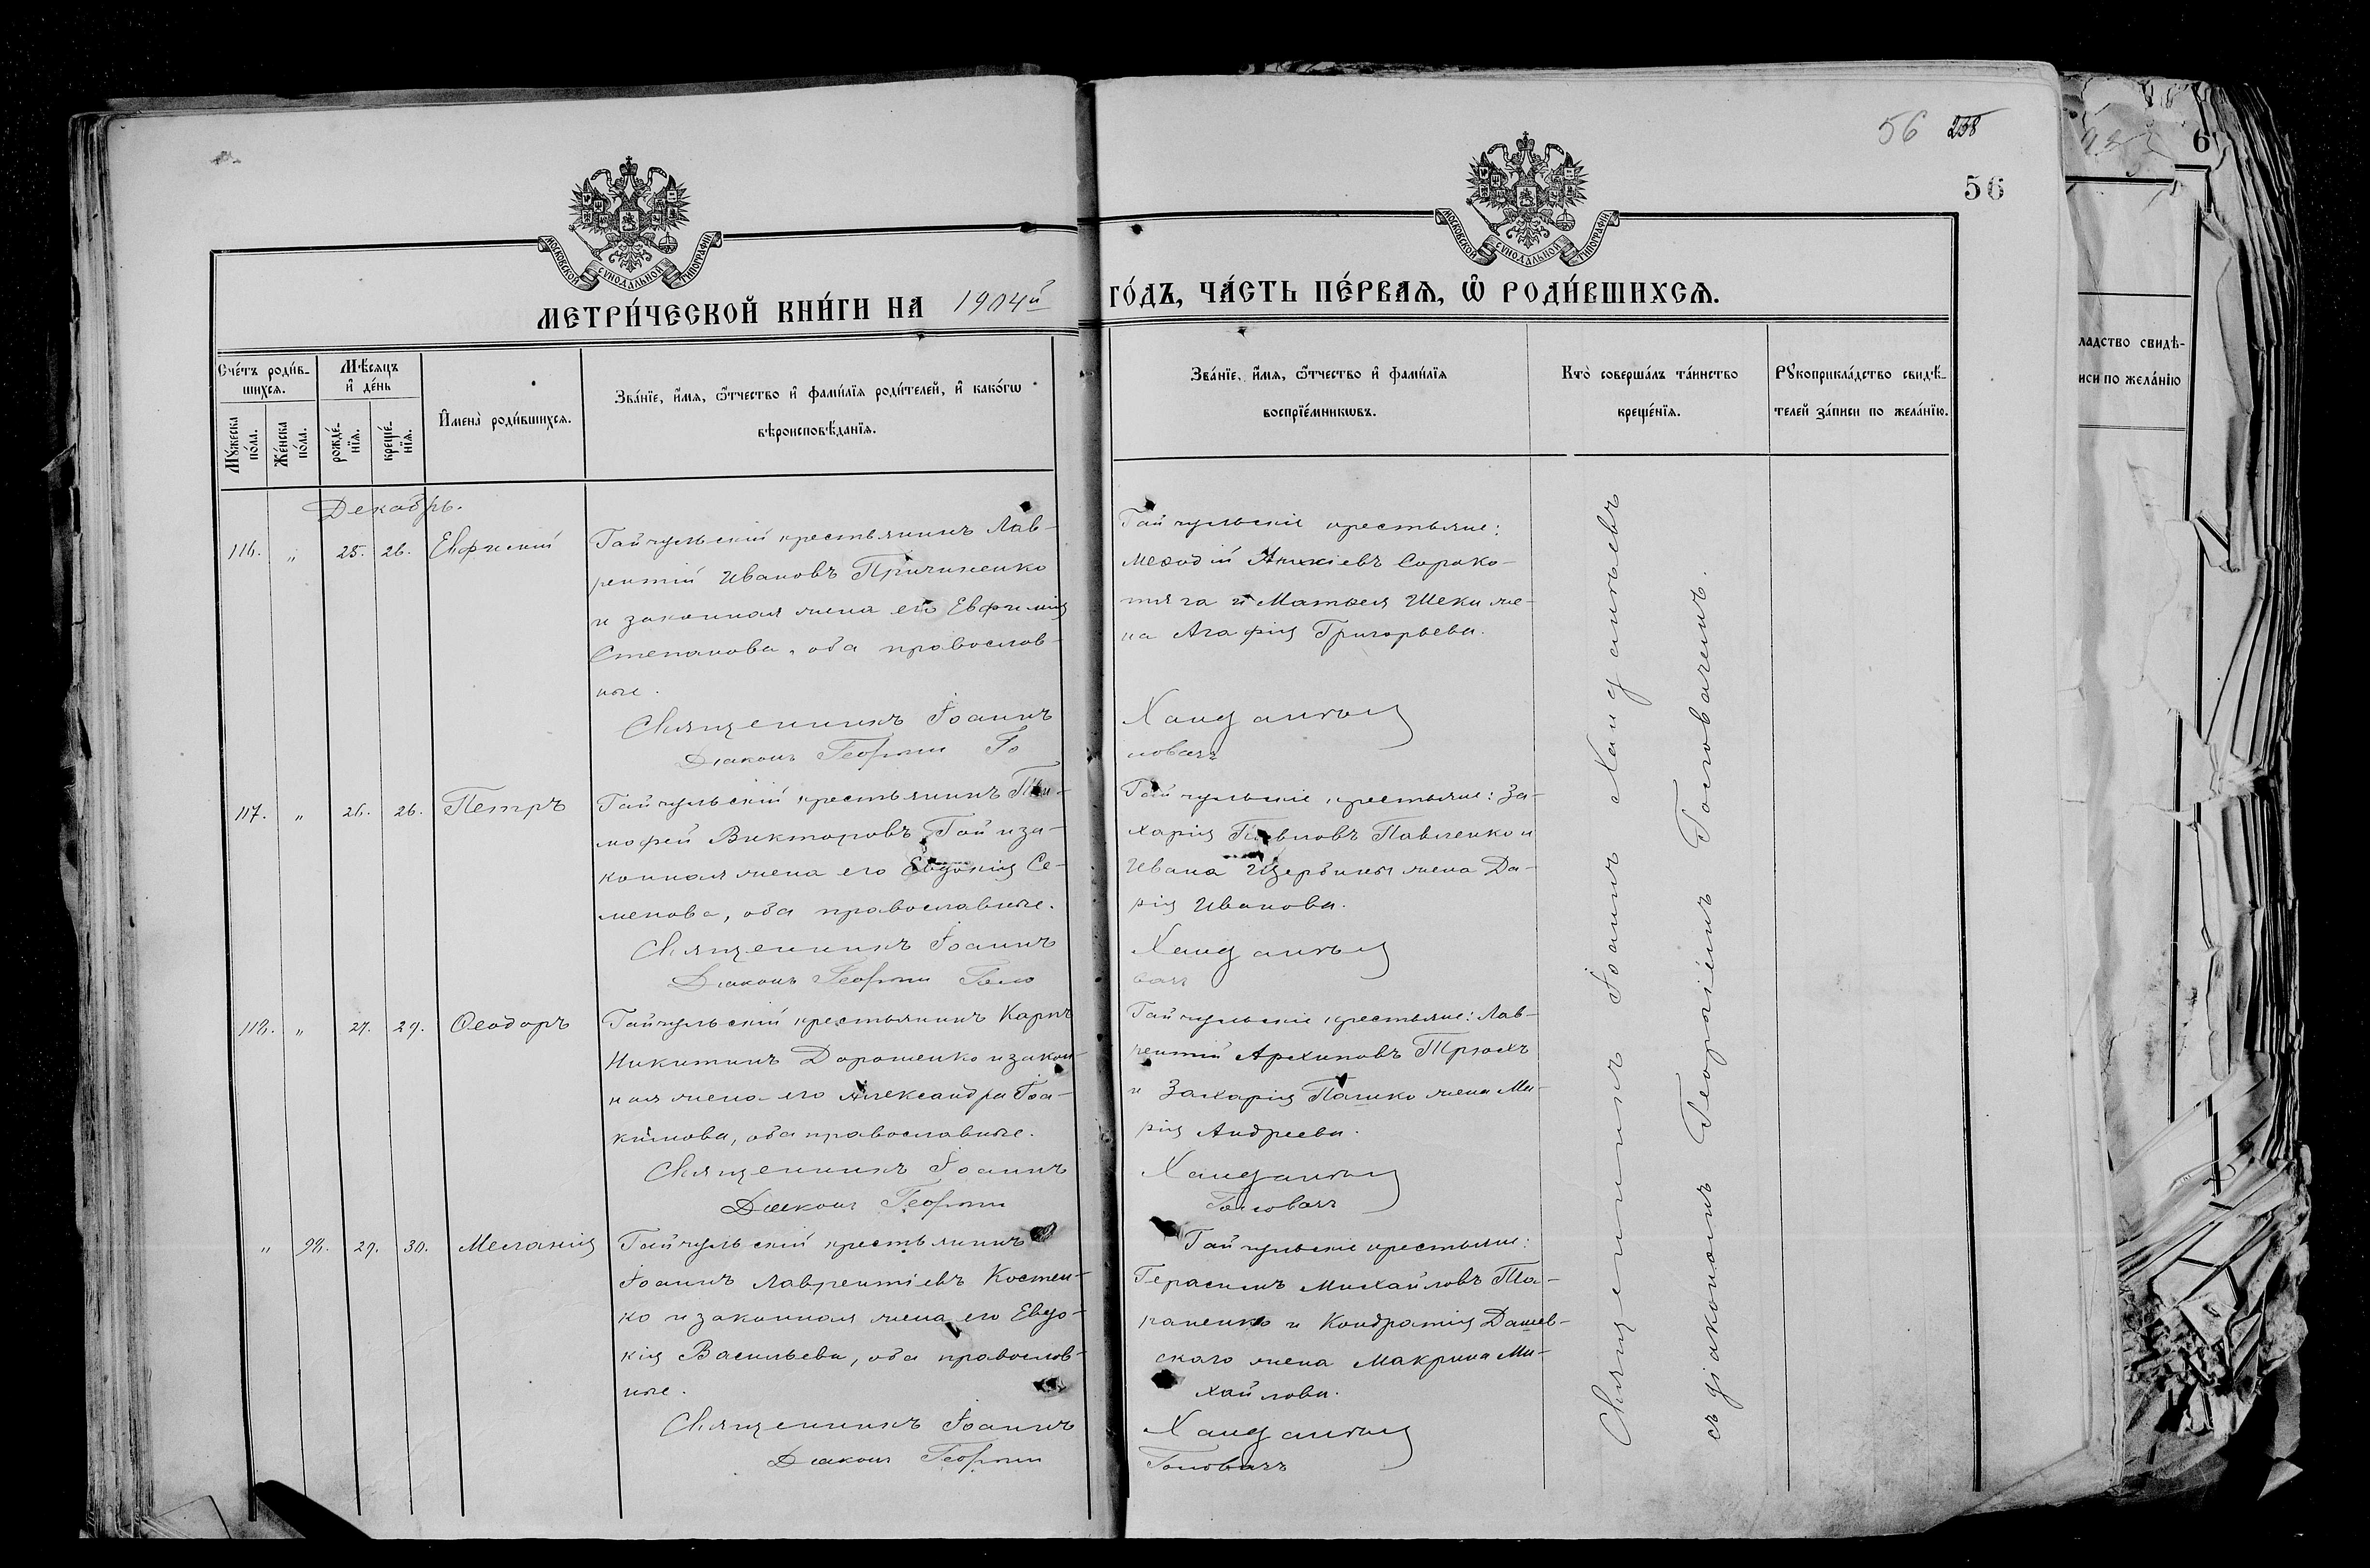 56 238
56
МОСКОВСКОЙ СѴНОДАЛЬНОЙ ТИПОГРАФІИ
МОСКОВСКОЙ СѴНОДАЛЬНОЙ ТИПОГРАФІИ
МЕТРИ́ЧЕСКОЙ КНИ́ГИ НА 1904й ГО́ДЪ, ЧА́СТЬ ПЕ́РВАѦ, Ѡ҆ РОДИ́ВШИХСѦ.
Сче́тъ роди́в-
шихсѧ.
Мѣ́сѧцъ
и҆ де́нь
Мꙋ́жеска
по́ла.
Же́нска
по́ла.
рожде́-
нїѧ.
креще́-
нїѧ.
И҆мена̀ роди́вшихсѧ.
Зва́нїе, и҆́мѧ, ѻ҆́тчество и҆ фами́лїѧ роди́телей, и҆ како́гѡ
вѣроисповѣ́данїѧ.
Зва́нїе, и҆́мѧ, ѻ҆́тчество и҆ фами́лїѧ
воспрїе́мникѡвъ.
Кто̀ соверша́лъ та́инство
креще́нїѧ.
Рꙋкоприкла́дство свидѣ́-
телей за́писи по жела́нїю.
Декабрь.
116. " 25. 26. Евфимій
Гайчульскій крестьянинъ Лав-
рентій Ивановъ Причиненко
и законная жена его Евфимія
Степанова, оба православ-
ные.
Священникъ Іоаннъ
Діаконъ Георгій Го
Гайчульскіе крестьяне:
Меѳодій Сороко-
тяга и Матвея Шеки же-
на Агафія Григорьева.
ловачъ
117. " 26. 26. Петръ
Гайчульскій крестьянинъ Ти-
мофей Викторовъ Гой и за-
конная жена его Евдокія Се-
менова, оба православные.
Священникъ Іоаннъ
Діаконъ Георгій Голо
Гайчульскіе крестьяне: За-
харія Павловъ Павленко и
Ивана Щербины жена Да-
рія Иванова.
вачъ
118. " 27. 29. Ѳеодоръ
Гайчульскій крестьянинъ Карпъ
Никитинъ Дорошенко и закон-
ная жена его Александра Іоа-
кимова, оба православные.
Священникъ Іоаннъ
Діаконъ Георгій
Гайчульскіе крестьяне: Лав-
рентій Архиповъ Трюхъ
и Захарія Пашко жена Ма-
рія Андреева.
Головачъ
" 98. 29. 30. Меланія
Гайчульскій крестьянинъ
Іоаннъ Лаврентіевъ Костен-
ко и законная жена его Евдо-
кія Васильева, оба православ-
ные.
Священникъ Іоаннъ
Діаконъ Георгій
Гайчульскіе крестьяне:
Герасимъ Михайловъ Та-
раненко и Кондратія Дашев-
скаго жена Макрина Ми-
хайлова.
Головачъ
Священникъ Іоаннъ
съ діакономъ Георгіемъ Головачемъ.
6
ладство свидѣ-
иси по жела́нїю